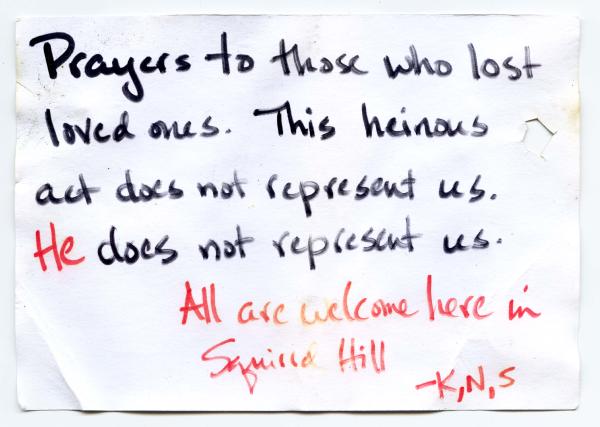 Prayers to those who lost
loved ones. This heinous
act does not represent us.
He does not represent us.
All are welcome here in
Squirrel Hill
-K,N,S